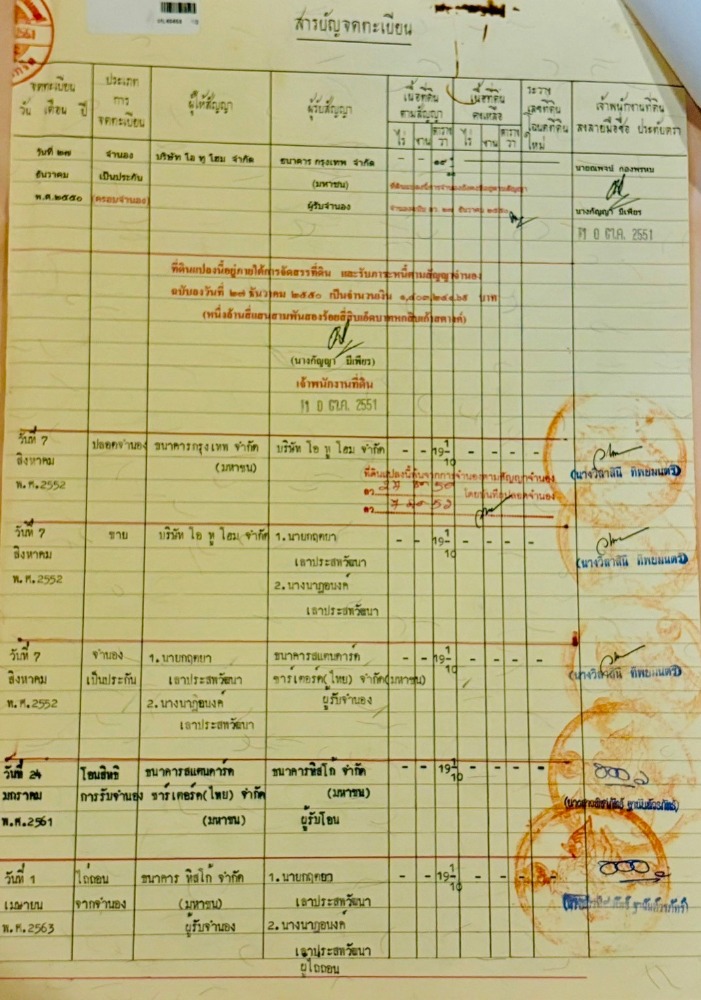 สารบัญจดทะเบียน
จดทะเบียน
วัน เดือน ปี
ประเภท
การ
จดทะเบียน
ผู้ให้สัญญา
ผู้รับสัญญา
เนื้อที่ดิน
ตามสัญญา
ไร่ งาน ตารางวา
เนื้อที่ดิน
คงเหลือ
ไร่ งาน ตารางวา
ระวาง
เลขที่ดิน
โฉนดที่ดิน
ใหม่
เจ้าพนักงานที่ดิน
ลงลายมือชื่อ ประทับตรา
วันที่ ๒๗ จำนอง บริษัท โอ ทู โฮม จำกัด ธนาคาร กรุงเทพ จำกัด - - ๑๙ ๑/๑๐
ธันวาคม เป็นประกัน (มหาชน)
พ.ศ.๒๕๕๐ (ครอบจำนอง) ผู้รับจำนอง
นางกัญญา มีเพียร
๑๐ ต.ค. 2551
ที่ดินแปลงนี้อยู่ภายใต้การจัดสรรที่ดิน และรับภาระหนี้ตามสัญญาจำนอง
ฉบับลงวันที่ ๒๗ ธันวาคม ๒๕๕๐ เป็นจำนวนเงิน ๑,๔๐๓,๒๔๑.๖๙ บาท
(หนึ่งล้านสี่แสนสามพันสองร้อยสี่สิบเอ็ดบาทหกสิบเก้าสตางค์)
(นางกัญญา มีเพียร)
เจ้าพนักงานที่ดิน
๑๐ ต.ค. 2551
วันที่ 7 ปลอดจำนอง ธนาคารกรุงเทพ จำกัด บริษัท โอ ทู โฮม จำกัด - - 19 1/10 - - - -
สิงหาคม (มหาชน)
พ.ศ.2552
ที่ดินแปลงนี้พ้นจากการจำนองตามสัญญาจำนอง
โดยบันทึกปลอดจำนอง
(นางวิลาสินี ทิพยมนตรี)
วันที่ 7 ขาย บริษัท โอ ทู โฮม จำกัด 1.นายกฤตยา - - 19 1/10 - - - -
สิงหาคม เลาประสพวัฒนา
พ.ศ.2552 2.นางนาฎอนงค์
เลาประสพวัฒนา
(นางวิลาสินี ทิพยมนตรี)
วันที่ 7 จำนอง 1.นายกฤตยา ธนาคารสแตนดาร์ด - - 19 1/10 - - - -
สิงหาคม เป็นประกัน เลาประสพวัฒนา ชาร์เตอร์ด(ไทย) จำกัด(มหาชน)
พ.ศ.2552 2.นางนาฎอนงค์ ผู้รับจำนอง
เลาประสพวัฒนา
(นางวิลาสินี ทิพยมนตรี)
วันที่ 24 โอนสิทธิ ธนาคารสแตนดาร์ด ธนาคารทิสโก้ จำกัด - - 19 1/10 - - - -
มกราคม การรับจำนอง ชาร์เตอร์ด(ไทย) จำกัด (มหาชน)
พ.ศ.2561 (มหาชน) ผู้รับโอน
วันที่ 1 ไถ่ถอน ธนาคาร ทิสโก้ จำกัด 1.นายกฤตยา - - 19 1/10 - - - -
เมษายน จากจำนอง (มหาชน) เลาประสพวัฒนา
พ.ศ.2563 ผู้รับจำนอง 2.นางนาฎอนงค์
เลาประสพวัฒนา
ผู้ไถ่ถอน